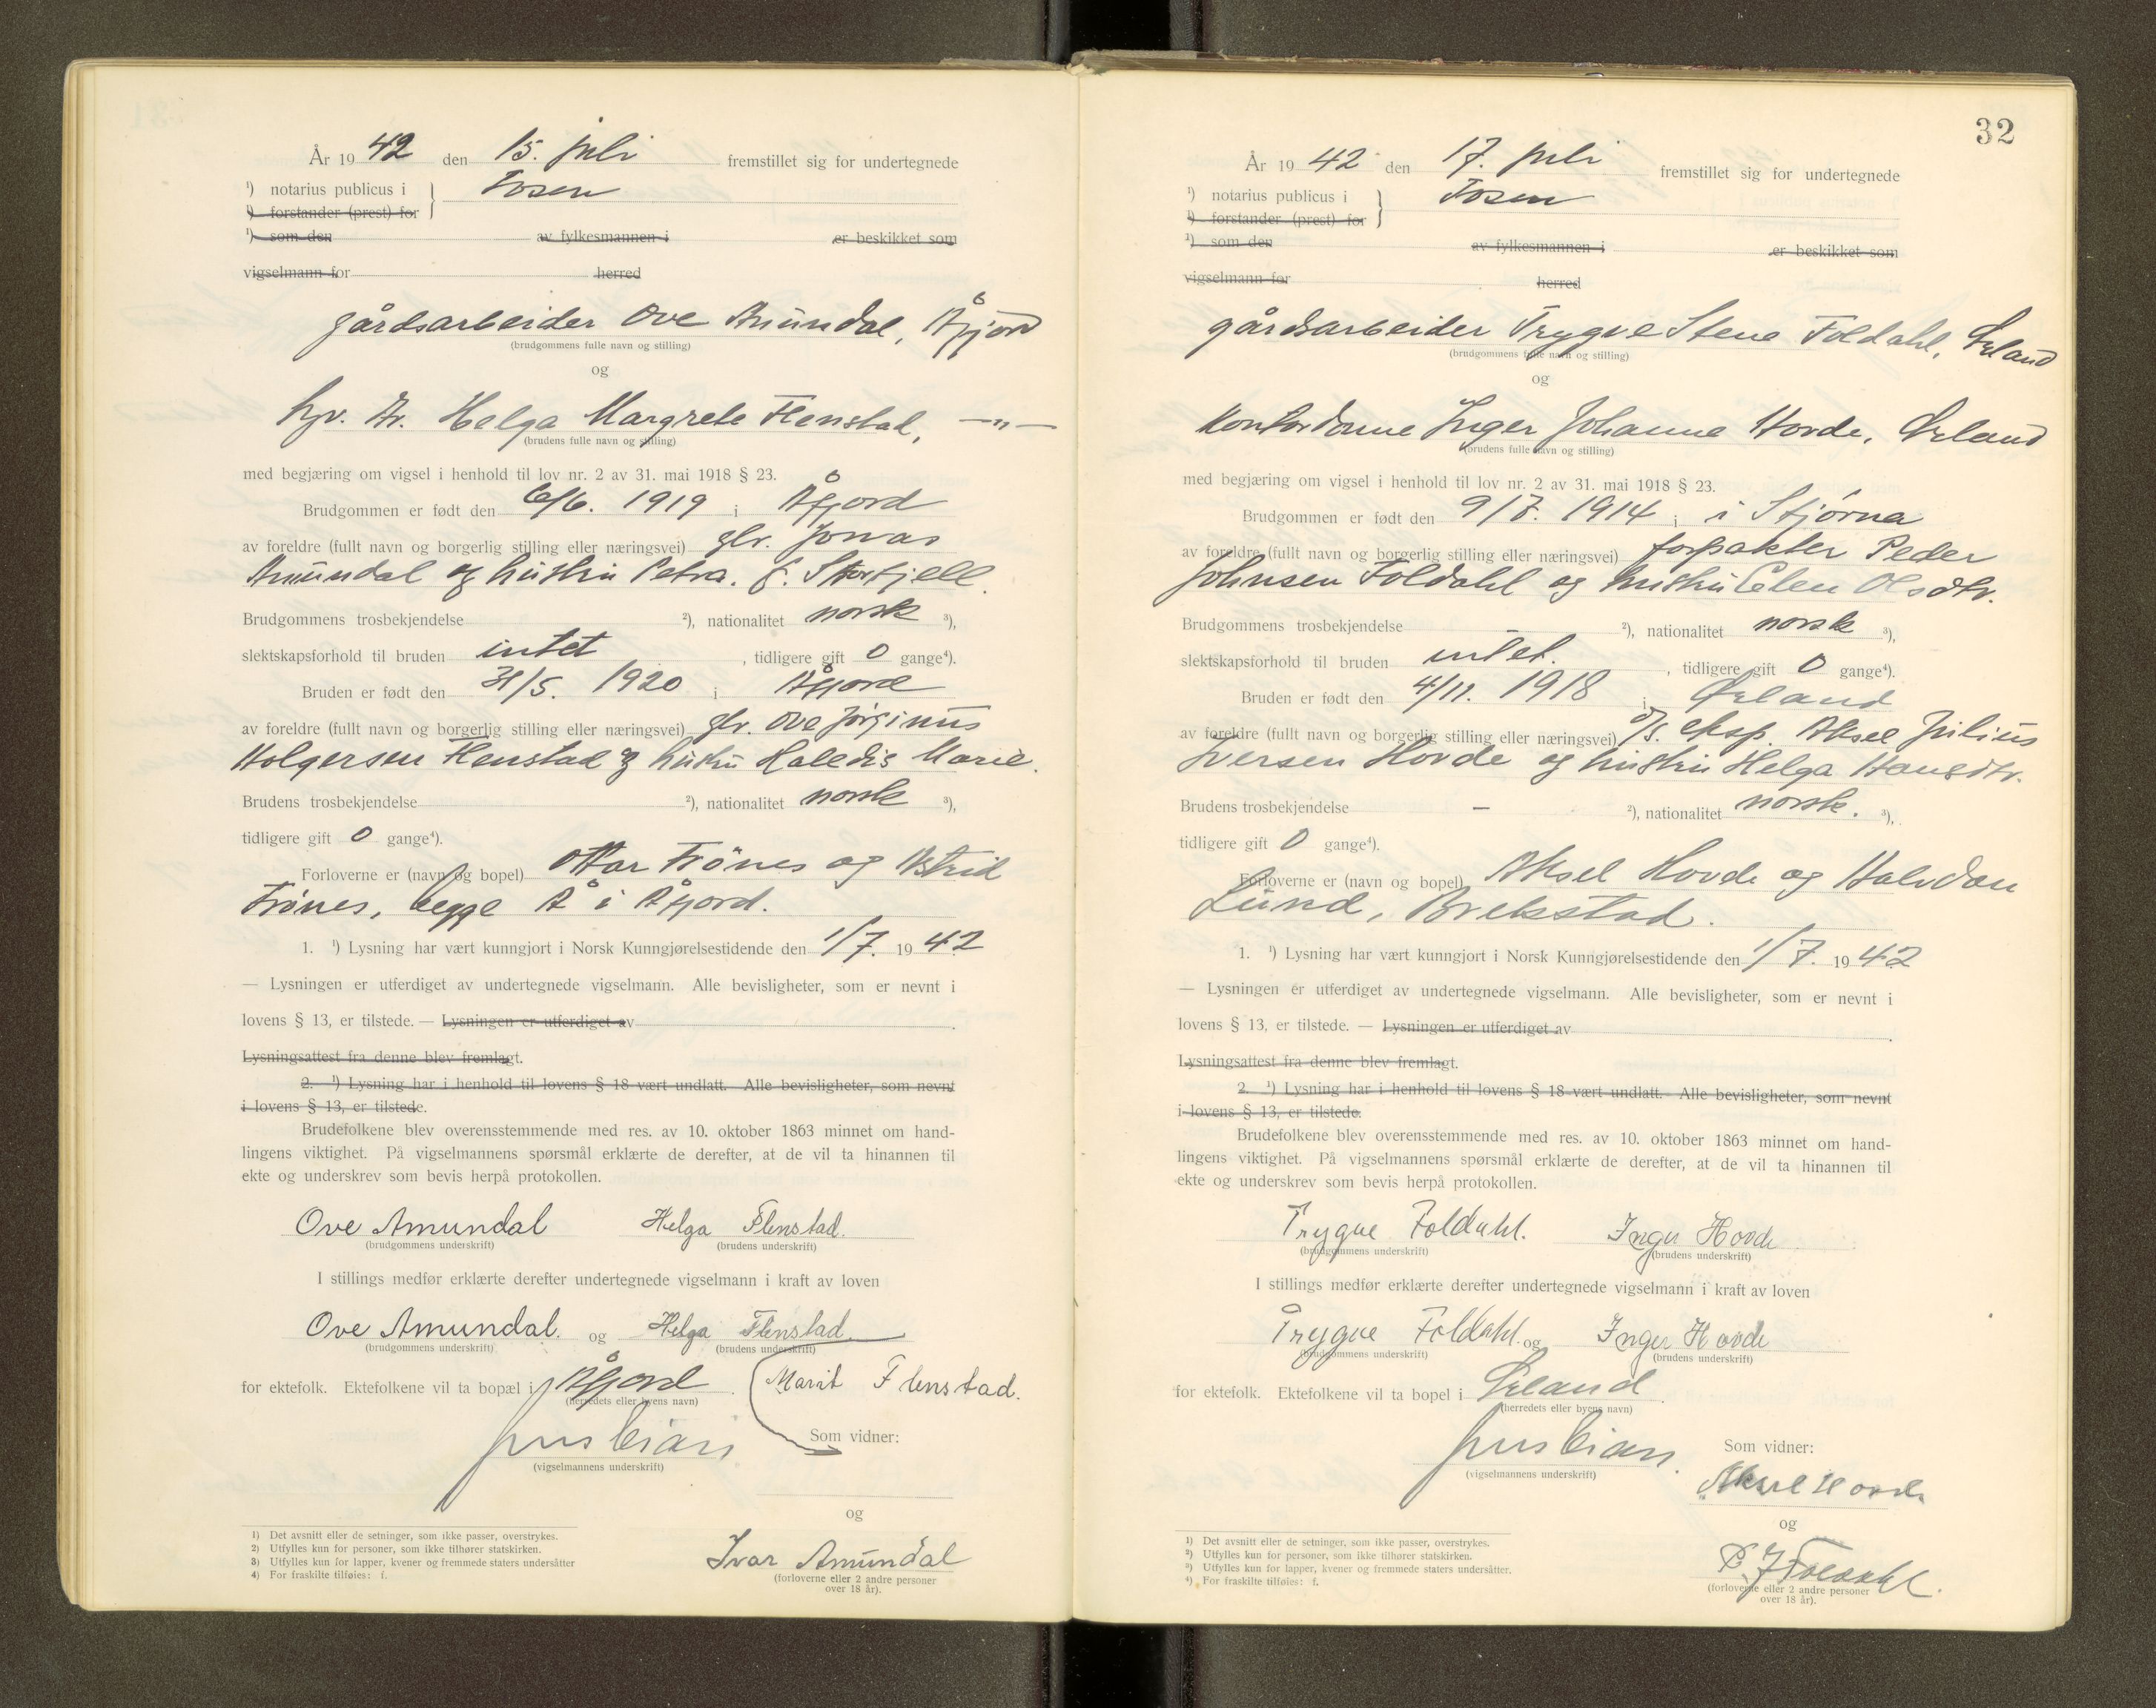 År 19 42 den 15. juli fremstillet sig for undertegnede
¹) notarius publicus i } Fosen
¹) forstander (prest) for
¹) som den av fylkesmannen i er beskikket som
vigselmann for herred
gårdsarbeider Ove Amundal, Åfjord
(brudgommens fulle navn og stilling)
og
Helga Margrete Flenstad, —"—
(brudens fulle navn og stilling)
med begjæring om vigsel i henhold til lov nr. 2 av 31. mai 1918 § 23.
Brudgommen er født den 6/6. 1919 i Åfjord
av foreldre (fullt navn og borgerlig stilling eller næringsvei) gbr. Jonas
Amundal og hustru Petra. f. Storfjell.
Brudgommens trosbekjendelse ²), nationalitet norsk ³),
slektskapsforhold til bruden intet , tidligere gift 0 gange⁴).
Bruden er født den 31/5. 1920 i Åfjord
av foreldre (fullt navn og borgerlig stilling eller næringsvei) gbr. Ove Jørginus
Holgersen Flenstad og hustru Halldis Marie.
Brudens trosbekjendelse ²), nationalitet norsk ³),
tidligere gift 0 gange⁴).
Forloverne er (navn og bopel) Ottar Frönes og Astrid
Frönes, begge Å i Åfjord.
1. ¹) Lysning har vært kunngjort i Norsk Kunngjørelsestidende den 1/7. 19 42
— Lysningen er utferdiget av undertegnede vigselmann. Alle bevisligheter, som er nevnt i
lovens § 13, er tilstede. — Lysningen er utferdiget av .
Lysningsattest fra denne blev fremlagt.
2. ¹) Lysning har i henhold til lovens § 18 vært undlatt. Alle bevisligheter, som nevnt
i lovens § 13, er tilstede.
Brudefolkene blev overensstemmende med res. av 10. oktober 1863 minnet om hand-
lingens viktighet. På vigselmannens spørsmål erklærte de derefter, at de vil ta hinannen til
ekte og underskrev som bevis herpå protokollen.
Ove Amundal Helga Flenstad.
(brudgommens underskrift) (brudens underskrift)
I stillings medfør erklærte derefter undertegnede vigselmann i kraft av loven
Ove Amundal. og Helga Flenstad
(brudgommens underskrift) (brudens underskrift)
for ektefolk. Ektefolkene vil ta bopæl i Åfjord . Marit Flenstad.
(herredets eller byens navn)
Som vidner:
(vigselmannens underskrift)
og
Ivar Amundal
(forloverne eller 2 andre personer
over 18 år).
1) Det avsnitt eller de setninger, som ikke passer, overstrykes.
2) Utfylles kun for personer, som ikke tilhører statskirken.
3) Utfylles kun for lapper, kvener og fremmede staters undersåtter
4) For fraskilte tilføies: f.
32
År 19 42 den 17. juli fremstillet sig for undertegnede
¹) notarius publicus i } Fosen
¹) forstander (prest) for
¹) som den av fylkesmannen i er beskikket som
vigselmann for herred
gårdsarbeider Trygve Stene Foldahl, Ørland
(brudgommens fulle navn og stilling)
og
Kontordame Inger Johanne Hovde, Ørland
(brudens fulle navn og stilling)
med begjæring om vigsel i henhold til lov nr. 2 av 31. mai 1918 § 23.
Brudgommen er født den 9/7. 1914 i i Stjørna
av foreldre (fullt navn og borgerlig stilling eller næringsvei) forpakter Peder
Johnsen Foldahl og hustru Elen Olsdtr.
Brudgommens trosbekjendelse ²), nationalitet norsk ³),
slektskapsforhold til bruden intet. , tidligere gift 0 gange⁴).
Bruden er født den 4/11. 1918 i Ørland
av foreldre (fullt navn og borgerlig stilling eller næringsvei) d/s. eksp. Aksel Julius
Iversen Hovde og hustru Helga Hansdtr.
Brudens trosbekjendelse – ²), nationalitet norsk. ³),
tidligere gift 0 gange⁴).
Forloverne er (navn og bopel) Aksel Hovde og Halvdan
Lund, Brekstad.
1. ¹) Lysning har vært kunngjort i Norsk Kunngjørelsestidende den 1/7. 19 42
— Lysningen er utferdiget av undertegnede vigselmann. Alle bevisligheter, som er nevnt i
lovens § 13, er tilstede. — Lysningen er utferdiget av .
Lysningsattest fra denne blev fremlagt.
2. ¹) Lysning har i henhold til lovens § 18 vært undlatt. Alle bevisligheter, som nevnt
i lovens § 13, er tilstede.
Brudefolkene blev overensstemmende med res. av 10. oktober 1863 minnet om hand-
lingens viktighet. På vigselmannens spørsmål erklærte de derefter, at de vil ta hinannen til
ekte og underskrev som bevis herpå protokollen.
Trygve Foldahl. Inger Hovde
(brudgommens underskrift) (brudens underskrift)
I stillings medfør erklærte derefter undertegnede vigselmann i kraft av loven
Trygve Foldahl. og Inger Hovde
(brudgommens underskrift) (brudens underskrift)
for ektefolk. Ektefolkene vil ta bopel i Ørland .
(herredets eller byens navn)
Som vidner:
(vigselmannens underskrift)
Aksel Hovde
og
P. J Foldahl.
(forloverne eller 2 andre personer
over 18 år).
1) Det avsnitt eller de setninger, som ikke passer, overstrykes.
2) Utfylles kun for personer, som ikke tilhører statskirken.
3) Utfylles kun for lapper, kvener og fremmede staters undersåtter.
4) For fraskilte tilføies: f.